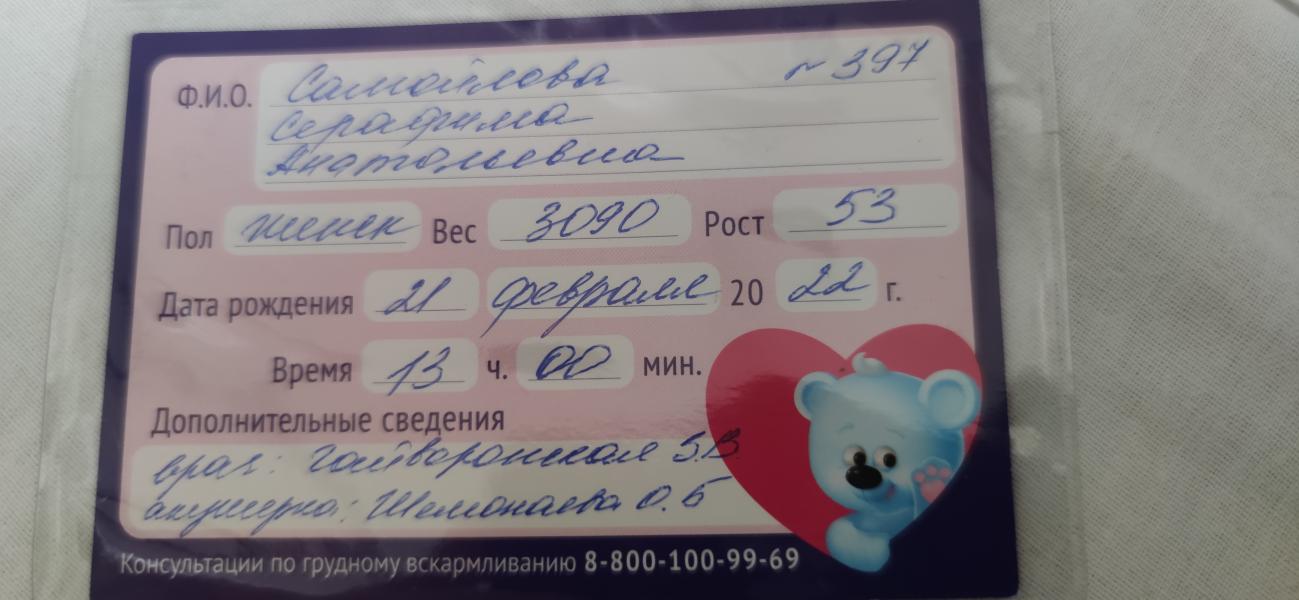 Ф.И.О. Самойлова № 397
Серафима
Анатольевна
Пол женск Вес 3090 Рост 53
Дата рождения 21 февраля 20 22 г.
Время 13 ч. 00 мин.
Дополнительные сведения
врач: Гайворонская З.В
акушерка: Шемонаева О.Б
Консультации по грудному вскармливанию 8-800-100-99-69